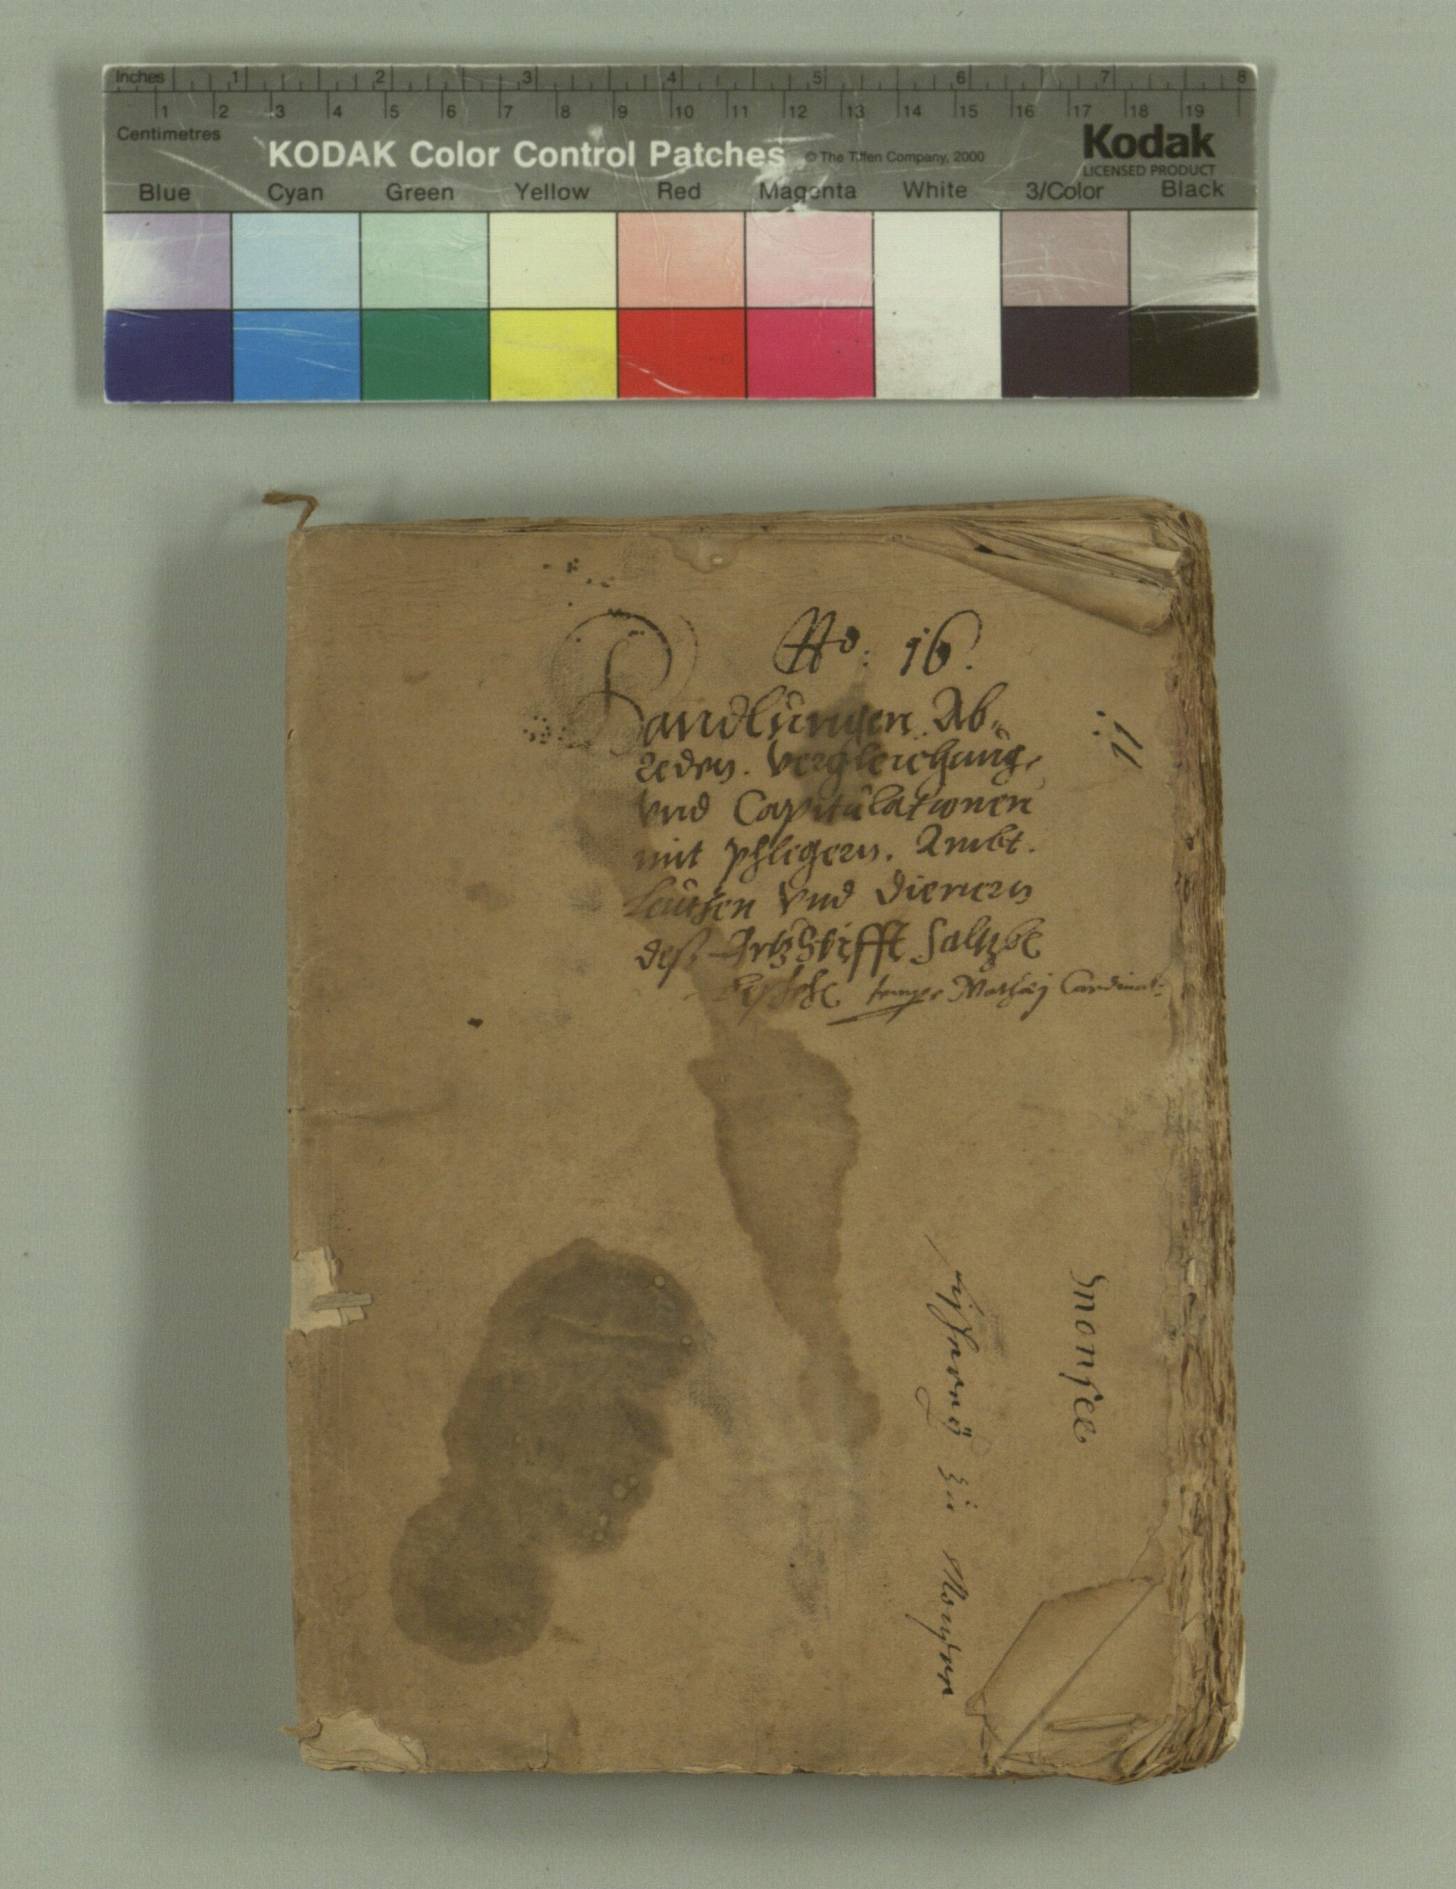 Inches 1 2 3 4 5 6 7 8
1 2 3 4 5 6 7 8 9 10 11 12 13 14 15 16 17 18 19
Centimetres
KODAK Color Control Patches © The Tiffen Company, 2000 Kodak
LICENSED PRODUCT
Blue Cyan Green Yellow Red Magenta White 3/Color Black
No: 16.
Handlungen. Ab„
reden. Vergleichung,
Vnd Capitulationen
mit Phlegern. Ambt.
leüthen Vnd Dienern
deß ErtzStifft Saltzb
Mathaj Cardinal:
11
Monsee.
zu Monsee